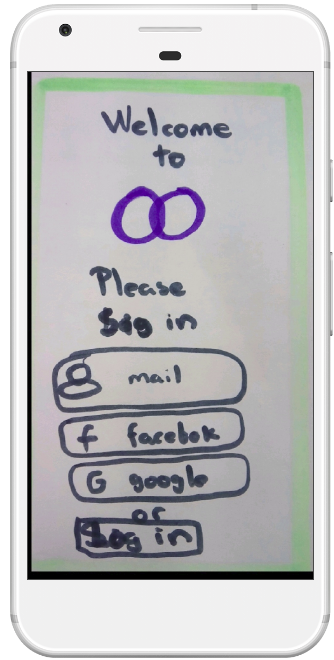 Welcome
to
Please
Log in
mail
f facebok
G google
or
Log in